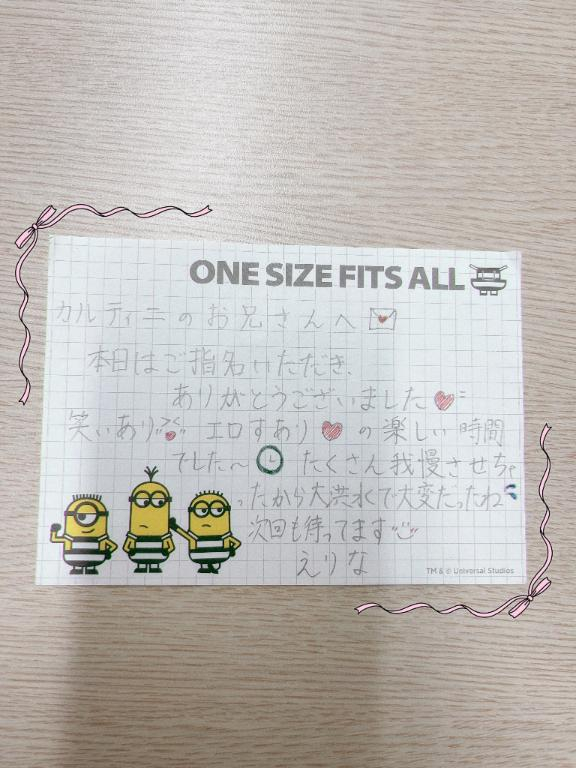 ONE SIZE FITS ALL
カルティニのお兄さんへ
本日はご指名いただき、
ありがとうございました
笑いあり エロすあり の楽しい時間
でした〜 たくさん我慢させちゃ
ったから大洪水で大変だったね
次回も待ってます
えりな
TM & © Universal Studios